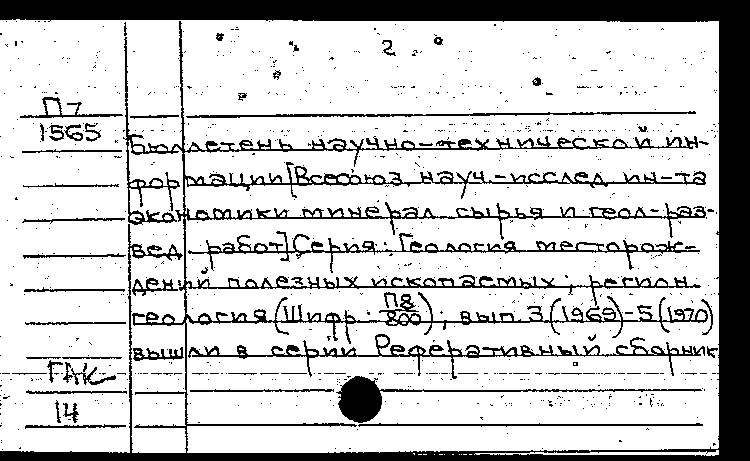 2
П7
1565
Бюллетень научно-технической ин-
формации [Всесоюз. науч.-исслед. ин-та
экономики минерал. сырья и геол-раз-
вед. работ] Серия: Геология месторож-
дений полезных ископаемых; регион.
геология (Шифр: П8/800); вып. 3(1969)-5(1970)
вышли в серии Реферативный сборник
ГАК
14